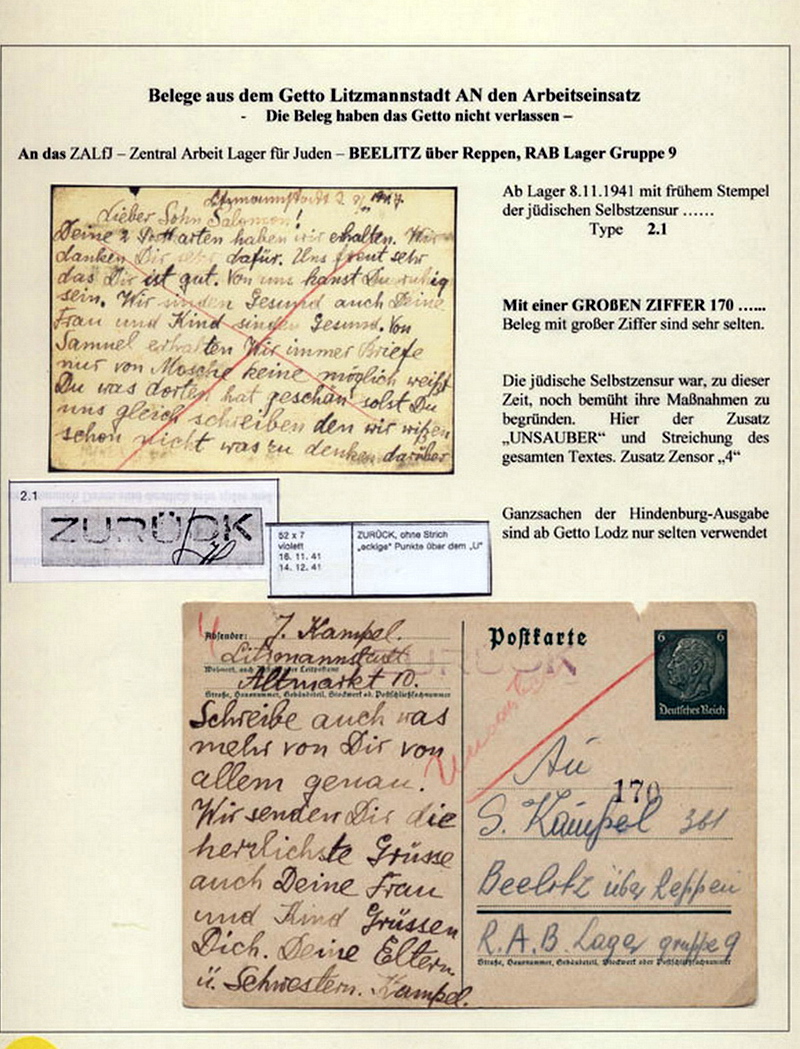 Belege aus dem Getto Litzmannstadt AN den Arbeitseinsatz
- Die Beleg haben das Getto nicht verlassen –
An das ZALfJ – Zentral Arbeit Lager für Juden – BEELITZ über Reppen, RAB Lager Gruppe 9
Litzmannstadt
Lieber Sohn Salamon!
Deine 2 Postkarten haben wir erhalten. Wir
danken Dir sehr dafür. Uns freut sehr
das Dir ist gut. Von uns kanst Du ruhig
sein. Wir sinden Gesund auch Deine
Frau und Kind sinden Gesund. Von
Samuel erhalten Wir immer Briefe
nur von Mosche keine möglich weißt
Du was dorten hat geschan solst Du
uns gleich schreiben den wir wißen
schon nicht was zu denken darüber
Ab Lager 8.11.1941 mit frühem Stempel
der jüdischen Selbstzensur ……
Type 2.1
Mit einer GROßEN ZIFFER 170 …...
Beleg mit großer Ziffer sind sehr selten.
Die jüdische Selbstzensur war, zu dieser
Zeit, noch bemüht ihre Maßnahmen zu
begründen. Hier der Zusatz
„UNSAUBER“ und Streichung des
gesamten Textes. Zusatz Zensor „4“
Ganzsachen der Hindenburg-Ausgabe
sind ab Getto Lodz nur selten verwendet
2.1
ZURÜCK
52 x 7
violett
16. 11. 41
14. 12. 41
ZURÜCK, ohne Strich
„eckige“ Punkte über dem „U“
4
Absender: J. Kampel.
Litzmannstadt
Wohnort, auch Zustell- oder Leitpostamt
Altmarkt 10.
Straße, Hausnummer, Gebäudeteil, Stockwerk od. Postschließfachnummer
Schreibe auch was
mehr von Dir von
allem genau.
Wir senden Dir die
herzlichste Grüsse
auch Deine Frau
und Kind Grüssen
Dich. Deine Eltern
ü. Schwestern. Kampel.
Postkarte
ZURÜCK
Unsauber
6 6
Deutsches Reich
An
170
S. Kampel 361
Beelitz über Reppen
R.A.B. Lager gruppe 9
Straße, Hausnummer, Gebäudeteil, Stockwerk oder Postschließfachnummer